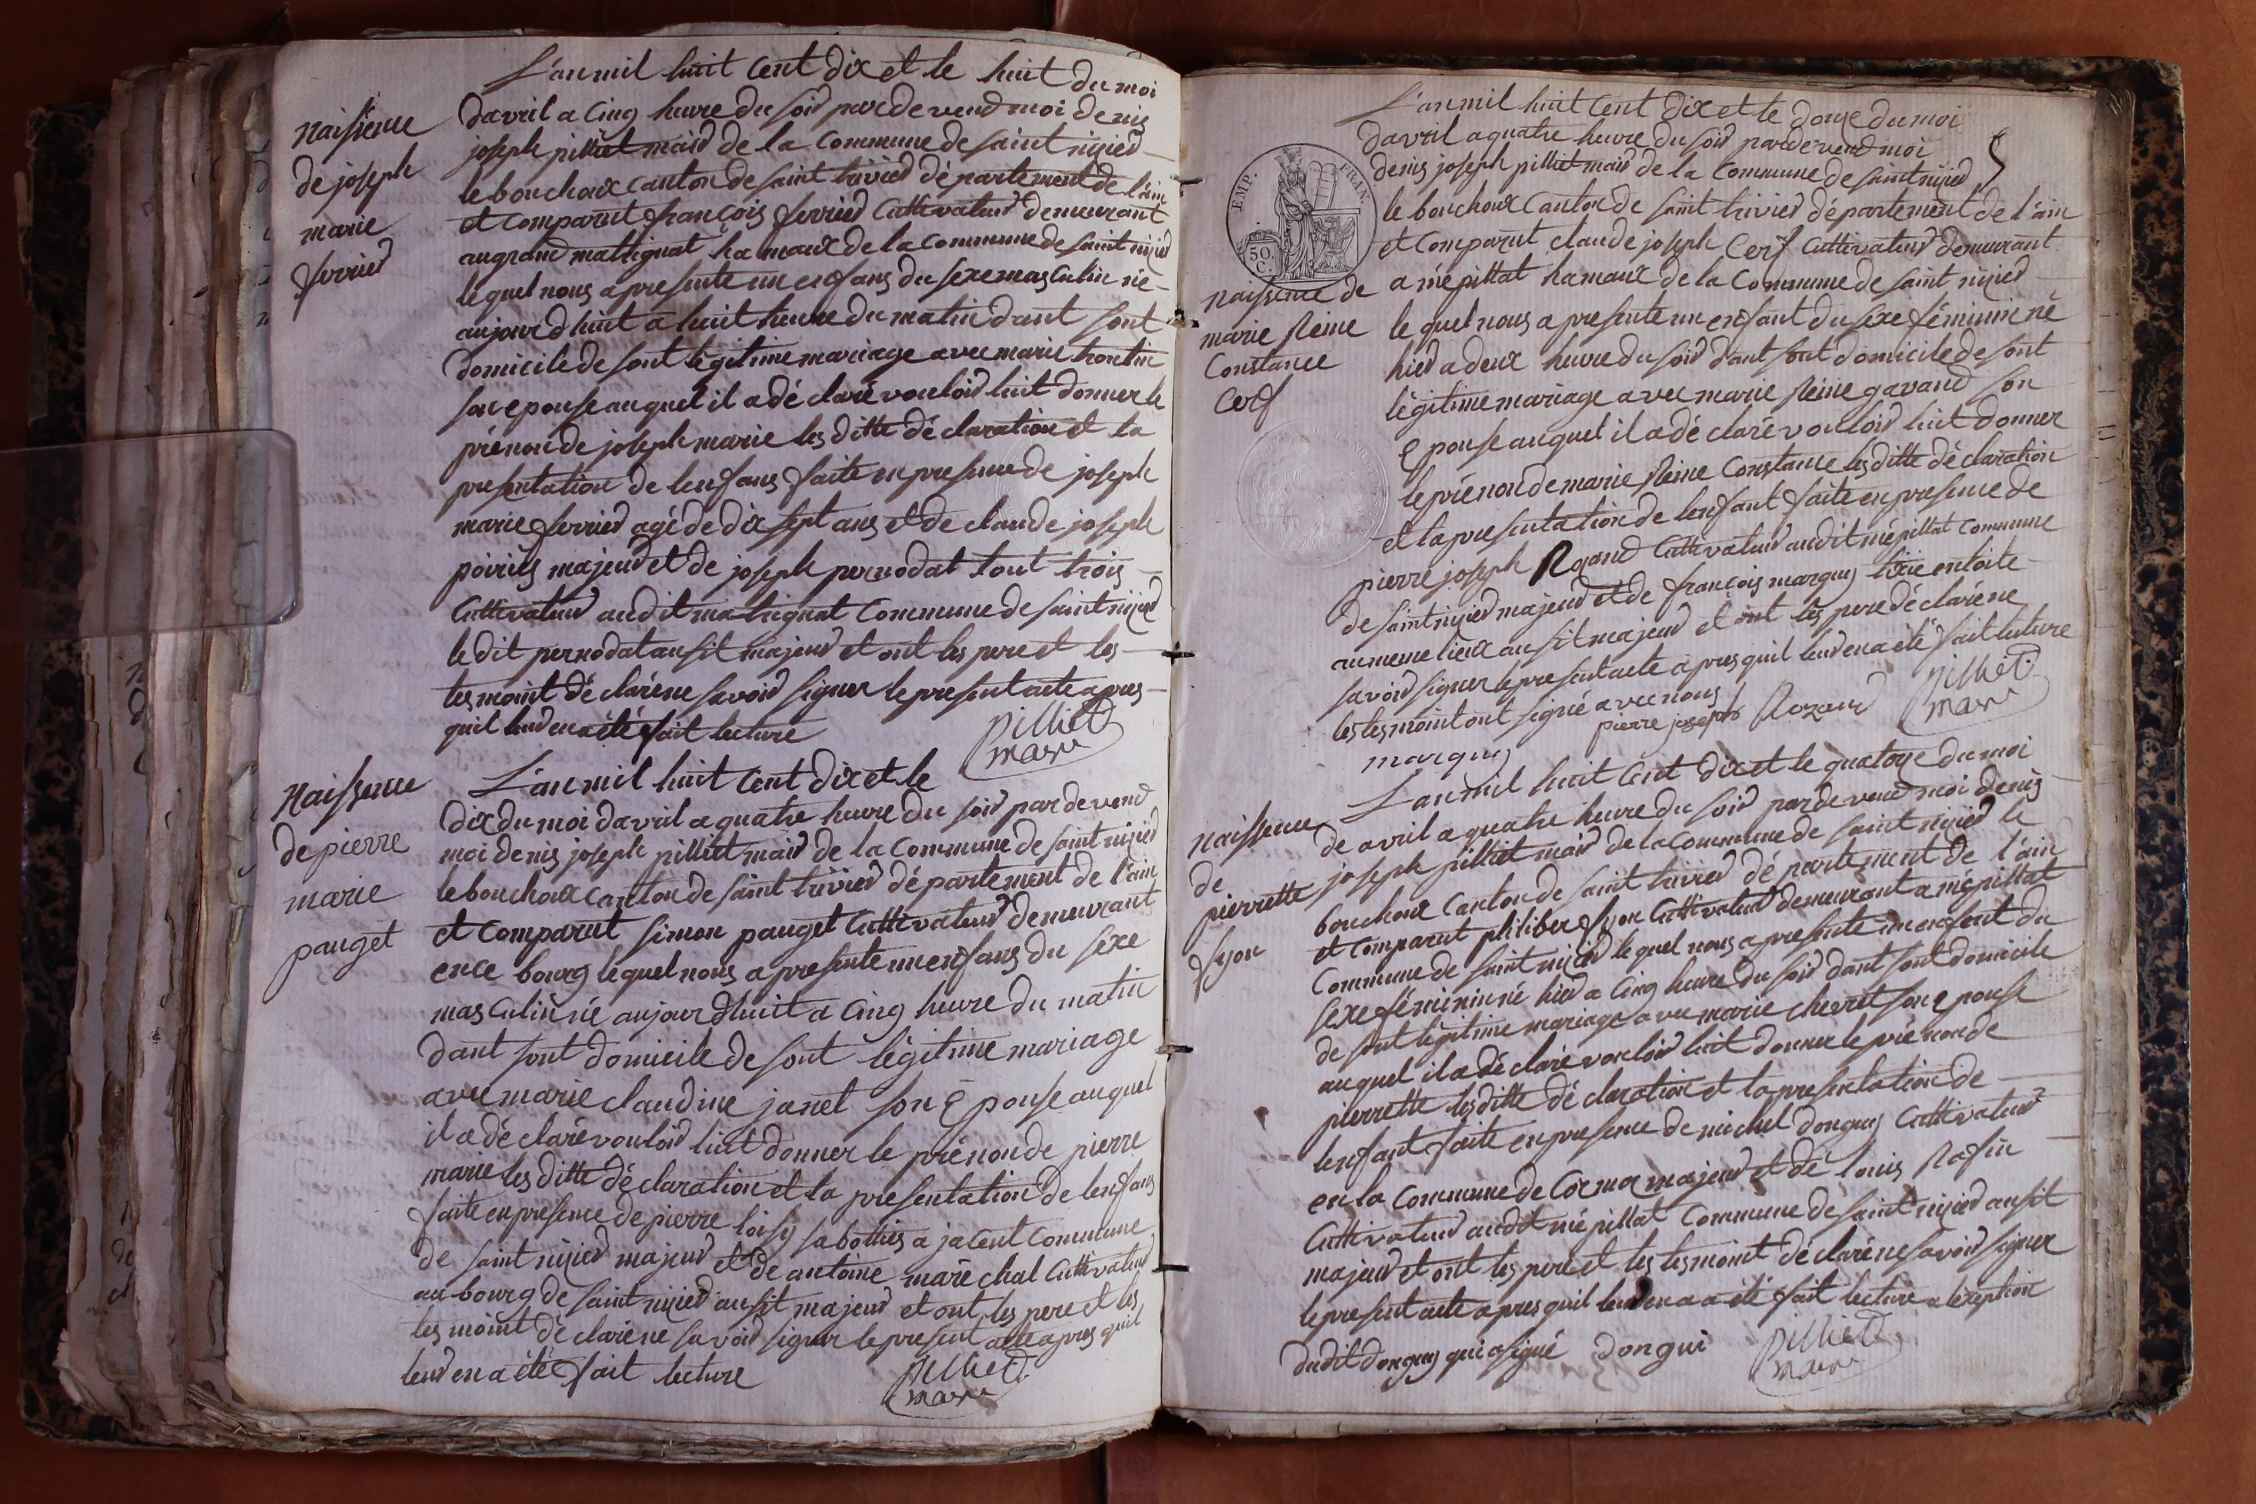 L'an mil huit cent dix et le huit du moi
naissence
de joseph
marie
ferrier
davril a cinq heure du soir par devend moi denis
joseph pilliet mair de la commune de saint nizier
le bouchoux canton de saint trivier département de l'ain
et comparut françois ferrier cuttivateur demeurant
au grand mattignat hamaux de la commune de saint nizier
lequel nous a presente un enfans du sexe masculin né
aujourdhuit a huit heure du matin dant sont
domicile de sont légitime mariage avec marie trontin
son epouse auquel il a déclaré vouloir luit donner le
prénon de joseph marie les ditte déclaration et la
presentation de lenfans faite en presence de joseph
marie ferrier agé de dix sept ans et de claude joseph
poirier majeur et de joseph pernodat tout trois
cuttivateur audit mattignat commune de saint nizier
le dit pernodat ausit majeur et ont les pere et les
tesmoint déclaré ne savoir signer le present acte apres
quil leur en a été fait lecture
pilliet
maire
naissence
de pierre
marie
pauget
L'an mil huit cent dix et le
dix du moi davril a quatre heure du soir par devend
moi denis joseph pilliet mair de la commune de saint nizier
le bouchoux canton de saint trivier département de l'ain
et comparut simon pauget cuttivateur demeurant
en ce bourg lequel nous a presente un enfans du sexe
masculin né aujourdhuit a cinq heure du matin
dant sont domicile de sont légitime mariage
avec marie claudine janet son epouse auquel
il a déclaré vouloir luit donner le prénon de pierre
marie les ditte déclaration et la presentation de lenfans
faite en presence de pierre loisy sabottier a jacent commune
de saint nizier majeur et de antoine maréchal cuttivateur
au bourg de saint nizier ausit majeur et ont les pere et les
tesmoint déclaré ne savoir signer le present acte apres quil
leur en a été fait lecture
pilliet
maire
5
EMP. FRAN.
50 C.
L'an mil huit cent dix et le douze du moi
naissence de
marie Reine
Constance
Cerf
davril a quatre heure du soir par devend moi
denis joseph pilliet mair de la commune de saint nizier
le bouchoux canton de saint trivier département de l'ain
et comparut claude joseph Cerf cuttivateur demeurant
a mépillat hamaux de la commune de saint nizier
le quel nous a presente un enfant du sexe féminin né
hier a deux heure du soir dant sont domicile de sont
légitime mariage avec marie Reine gavand son
epouse auquel il a déclaré vouloir luit donner
le prénon de marie Reine Constance les ditte déclaration
et la presentation de lenfant faite en presence de
pierre joseph Rozand cuttivateur audit mépillat commune
de saint nizier majeur et de françois marquis tixie en toite
au meme lieux ausit majeur et ont les pere déclaré ne
savoir signer le present acte apres quil leur en a été fait lecture
les tesmoint ont signé avec nous
pierre joseph Rozand
marquis
pilliet
maire
naissence
de
pierrette
fyon
L'an mil huit cent dix et le quatorze du moi
de avril a quatre heure du soir par devend moi denis
joseph pilliet mair de la commune de saint nizier le
bouchoux canton de saint trivier département de l'ain
et comparut philiber fyon cuttivateur demeurant a mépillat
commune de saint nizier le quel nous a presente un enfant du
sexe féminin né hier a cinq heure du soir dant sont domicile
de sont légitime mariage avec marie chevret son epouse
auquel il a déclaré vouloir luit donner le prénon de
pierrette les ditte déclaration et la presentation de
lenfant faite en presence de michel donguy cuttivateur
en la commune de Cormoz majeur et de louis Rafin
cuttivateur audit mépillat commune de saint nizier ausit
majeur et ont les pere et les tesmoint déclaré ne savoir signer
le present acte apres quil leur en a a été fait lecture a lexeption
dudit donguy qui a signé dongui
pilliet
maire